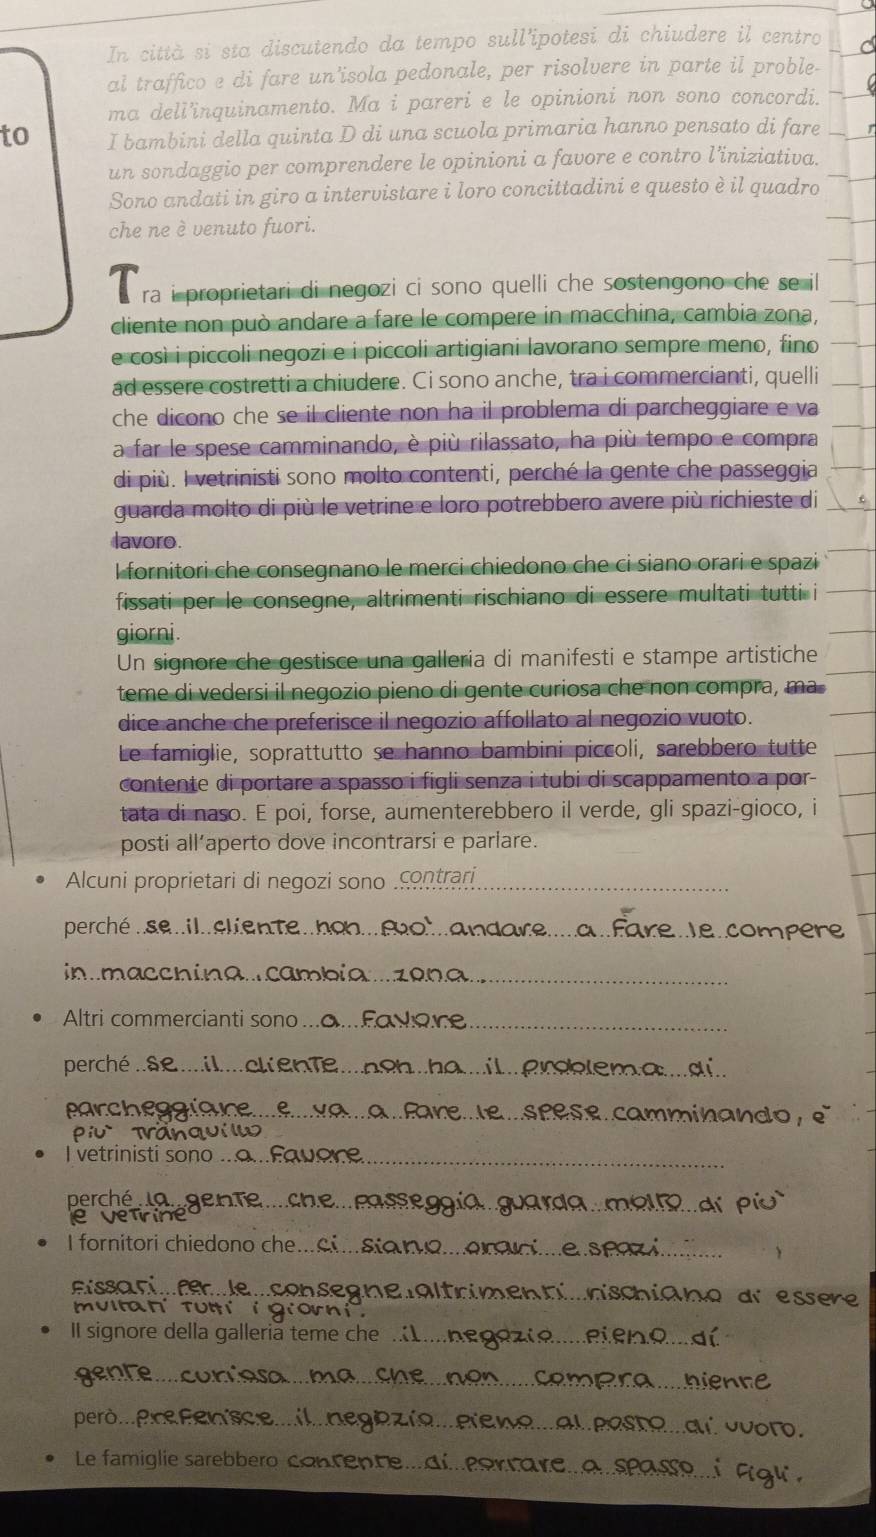 In città si sta discutendo da tempo sull'ipotesi di chiudere il centro
al traffico e di fare un'isola pedonale, per risolvere in parte il proble-
ma dell'inquinamento. Ma i pareri e le opinioni non sono concordi.
to
I bambini della quinta D di una scuola primaria hanno pensato di fare
un sondaggio per comprendere le opinioni a favore e contro l'iniziativa.
Sono andati in giro a intervistare i loro concittadini e questo è il quadro
che ne è venuto fuori.
Tra i proprietari di negozi ci sono quelli che sostengono che se il
cliente non può andare a fare le compere in macchina, cambia zona,
e così i piccoli negozi e i piccoli artigiani lavorano sempre meno, fino
ad essere costretti a chiudere. Ci sono anche, tra i commercianti, quelli
che dicono che se il cliente non ha il problema di parcheggiare e va
a far le spese camminando, è più rilassato, ha più tempo e compra
di più. I vetrinisti sono molto contenti, perché la gente che passeggia
guarda molto di più le vetrine e loro potrebbero avere più richieste di
lavoro.
I fornitori che consegnano le merci chiedono che ci siano orari e spazi
fissati per le consegne, altrimenti rischiano di essere multati tutti i
giorni.
Un signore che gestisce una galleria di manifesti e stampe artistiche
teme di vedersi il negozio pieno di gente curiosa che non compra, ma
dice anche che preferisce il negozio affollato al negozio vuoto.
Le famiglie, soprattutto se hanno bambini piccoli, sarebbero tutte
contente di portare a spasso i figli senza i tubi di scappamento a por-
tata di naso. E poi, forse, aumenterebbero il verde, gli spazi-gioco, i
posti all'aperto dove incontrarsi e parlare.
• Alcuni proprietari di negozi sono contrari
perché se il cliente non può andare a fare le compere
in macchina, cambia zona,
• Altri commercianti sono a favore
perché se il cliente non ha il problema di
parcheggiare e va a fare le spese camminando, è
più tranquillo
• I vetrinisti sono a favore
perché la gente che passeggia guarda molto di più
le vetrine
• I fornitori chiedono che ci siano orari e spazi
fissati per le consegne, altrimenti rischiano di essere
multati tutti i giorni.
• Il signore della galleria teme che il negozio pieno di
gente curiosa ma che non compra niente
però preferisce il negozio pieno al posto di vuoto.
• Le famiglie sarebbero contente di portare a spasso i figli.